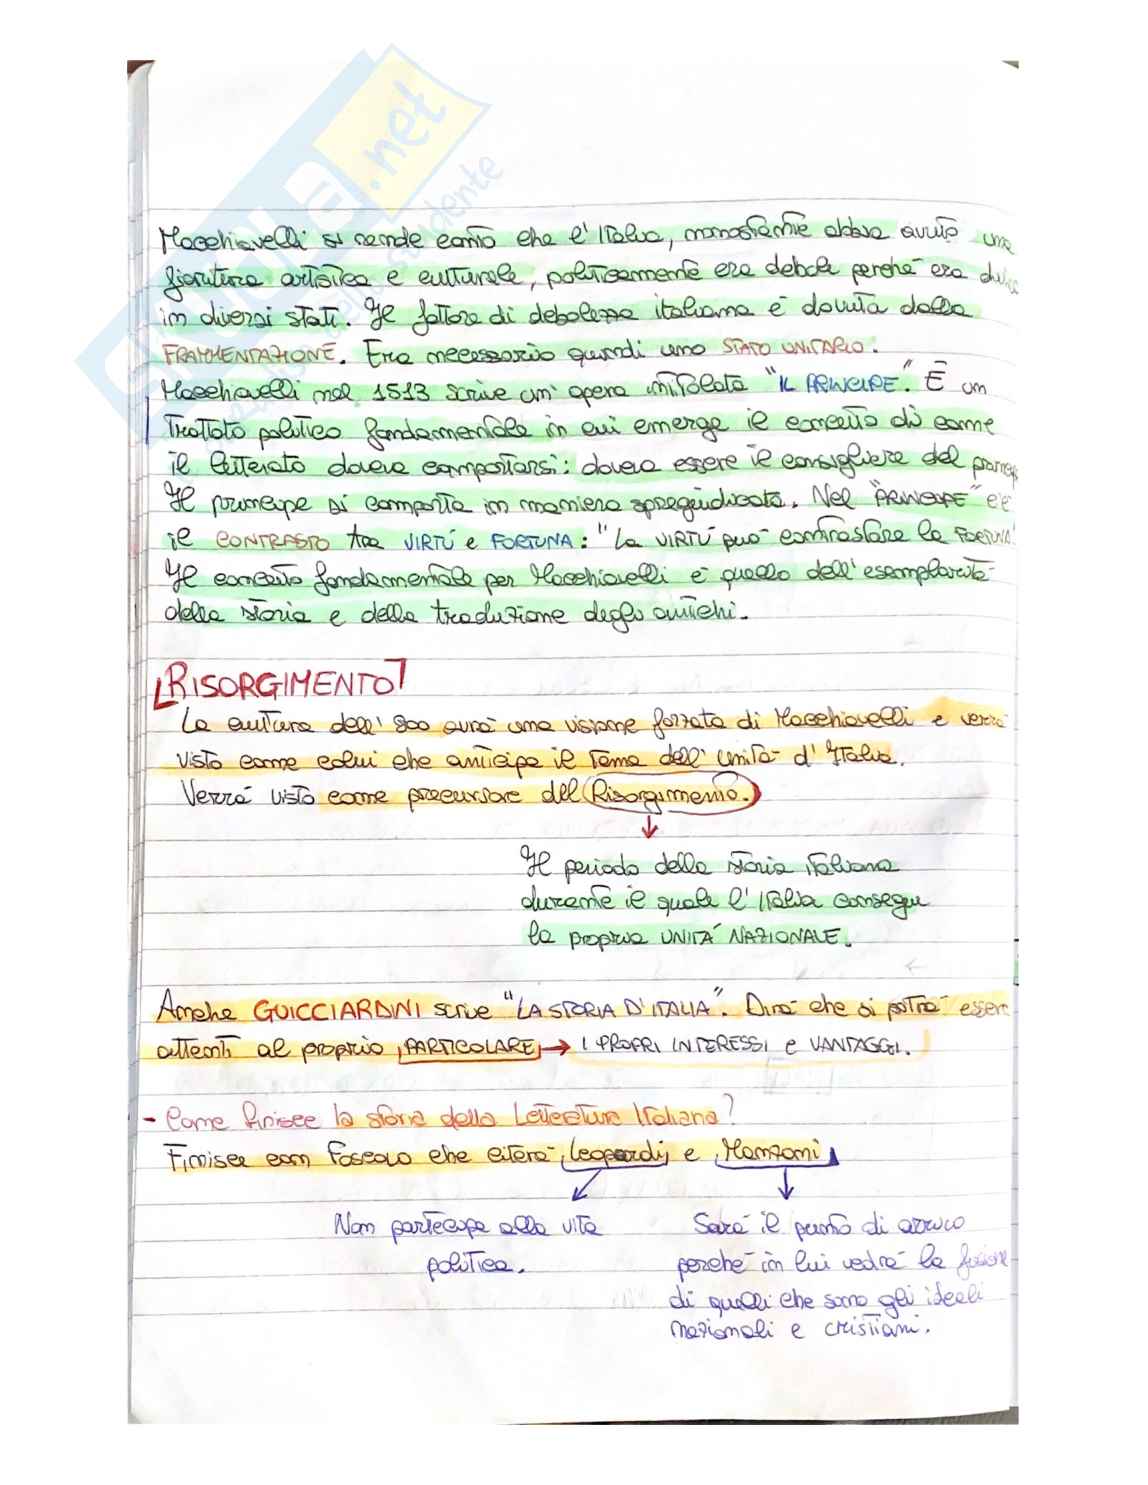 Skuola.net
Macchiavelli si rende conto che l'Italia, nonostante abbia avuto una
fioritura artistica e culturale, politicamente era debole perché era
in diversi stati. Il fattore di debolezza italiana è dovuta dalla
FRAMMENTAZIONE. Era necessario quindi uno STATO UNITARIO.
Macchiavelli nel 1513 scrive un'opera intitolata "IL PRINCIPE". È un
trattato politico fondamentale in cui emerge il concetto di come
il letterato doveva comportarsi: doveva essere il consigliere del
Il principe si comporta in maniera spregiudicata. Nel "PRINCIPE" c'è
il CONTRASTO tra VIRTÙ e FORTUNA: "La VIRTÙ può contrastare la FORTUNA"
Il concetto fondamentale per Macchiavelli è quello dell'esemplarità
della storia e della traduzione degli antichi.
RISORGIMENTO
La cultura dell'800 avrà una visione forzata di Macchiavelli e verrà
visto come colui che anticipa il tema dell'unità d'Italia.
Verrà visto come precursore del Risorgimento.
Il periodo della storia italiana
durante il quale l'Italia conseguì
la propria UNITÀ NAZIONALE.
Anche GUICCIARDINI scrive "LA STORIA D'ITALIA". Dirà che si potrà essere
attenti al proprio PARTICOLARE → I PROPRI INTERESSI e VANTAGGI.
- Come finisce la storia della Letteratura Italiana?
Finisce con Foscolo che citerà Leopardi e Manzoni
Non partecipa alla vita
politica.
Sarà il punto di arrivo
perché in lui vedrà la fusione
di quelli che sono gli ideali
nazionali e cristiani.